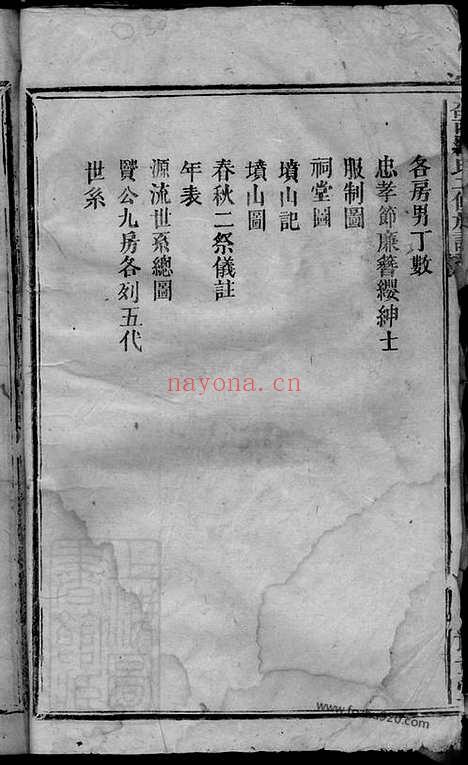 各房男丁數
忠孝節廉簪纓紳士
服制圖
祠堂圖
墳山記
墳山圖
春秋二祭儀註
年表
源流世系總圖
賢公九房各列五代
世系
nayona.cn